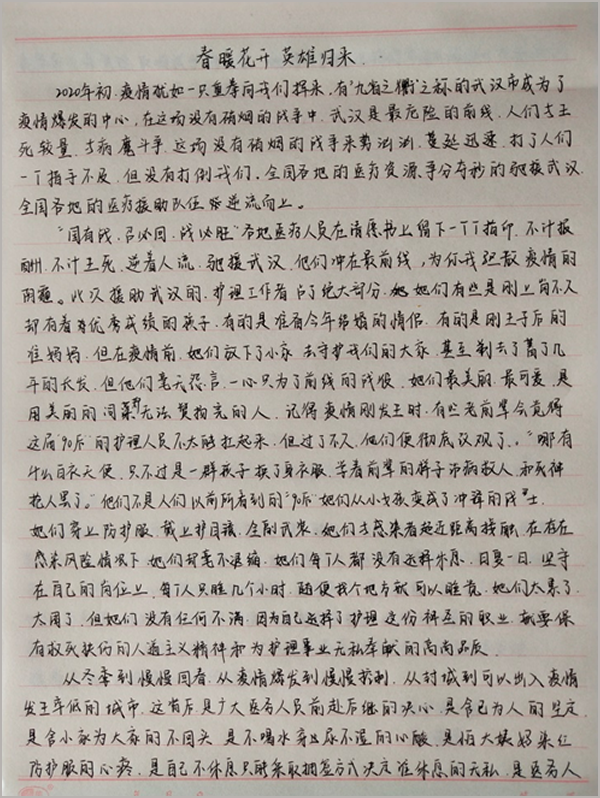 春暖花开 英雄归来.
2020年初.疫情犹如一只重拳向我们挥来,有"九省之衢"之称的武汉市成为了
疫情爆发的中心,在这场没有硝烟的战争中.武汉是最危险的前线,人们与生
死较量.与病魔斗争.这场没有硝烟的战争来势汹汹.蔓延迅速.打了人们
一个措手不及.但没有打倒我们.全国各地的医疗资源.争分夺秒的驰援武汉.
全国各地的医疗援助队伍逆流而上。
"国有战.召必回.战必胜"各地医疗人员在请愿书上留下一个个指印.不计报
酬.不计生死.逆着人流.驰援武汉.他们冲在最前线,为你我驱散疫情的
阴霾。此次援助武汉的.护理工作者占了绝大部分.她们有些是刚上岗不久
却有着优秀成绩的孩子.有的是准备今年结婚的情侣.有的是刚生子后的
准妈妈.但在疫情前.她们放下了小家.去守护我们的大家.甚至剃去了蓄了几
年的长发.但他们毫无怨言.一心只为了前线的战役.她们最美丽.最可爱.是
用美丽的词藻无法赞扬完的人.记得疫情刚发生时.有些老前辈会觉得
这届"90后"的护理人员不太能扛起来.但过了不久.他们便彻底改观了。"哪有
什么白衣天使.只不过是一群孩子换了身衣服.学着前辈的样子治病救人.和死神
抢人罢了。"他们不是人们以前所看到的"90后"她们从小女孩变成了冲锋的战士.
她们穿上防护服.戴上护目镜.全副武装。她们与感染者超近距离接触.在存在
感染风险情况下.她们却毫不退缩.她们每个人都没有选择休息.日复一日.坚守
在自己的岗位上.每个人只睡几个小时.随便找个地方就可以睡着.她们太累了.
太困了.但她们没有任何不满.因为自己选择了护理这份神圣的职业.就要保
有救死扶伤的人道主义精神和为护理事业无私奉献的高尚品质.
从冬季到慢慢回春.从疫情爆发到慢慢控制.从封城到可以出入疫情
发生率低的城市.这背后是广大医务人员前赴后继的决心.是舍已为人的坚定.
是舍小家为大家的不回头.是不喝水穿尿不湿的心酸.是怕大姨妈染红
防护服的心疼.是自己不休息只能采取抽签方式决定谁休息的无私.是医务人